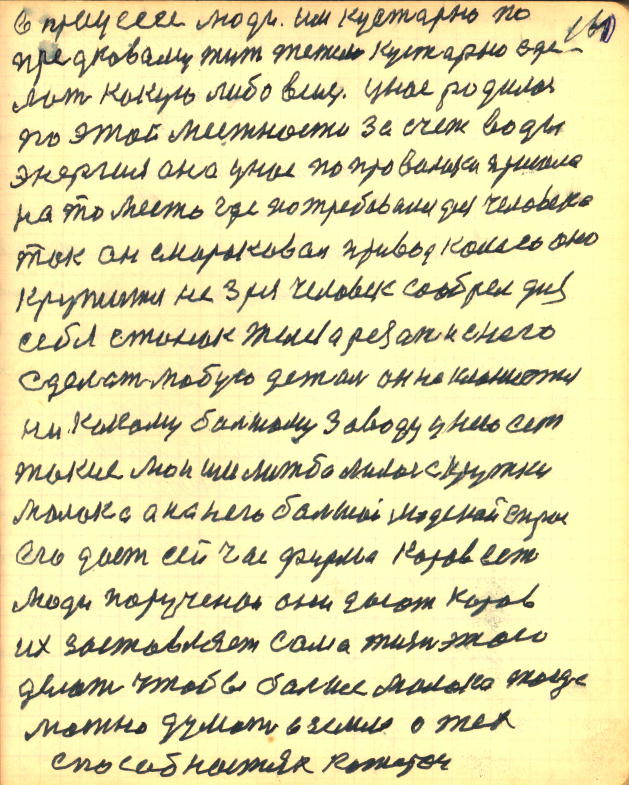 160
в процессе люди. им кустарно по
предковаму тит тежело кустарно зде
лат какую либо вещ. умое родилос
по этой местности за счет воды
энергия она умое по провалаки пришла
на то место где потребовали для человека
так он смараковал привод колесо оно
крутит не зря человек сообрел для
себя станок железа резат и с него
сделат любую детал он не кланиется
ни какому балшому заводу у него ест
такие малака
малака а на него балшой спрос
его дает сей час фирма каров ест
люди поручено они доют каров
их заставляет сама жизн этого
делат чтобы балше малака тогда
можно думат в земле о тех
способностях